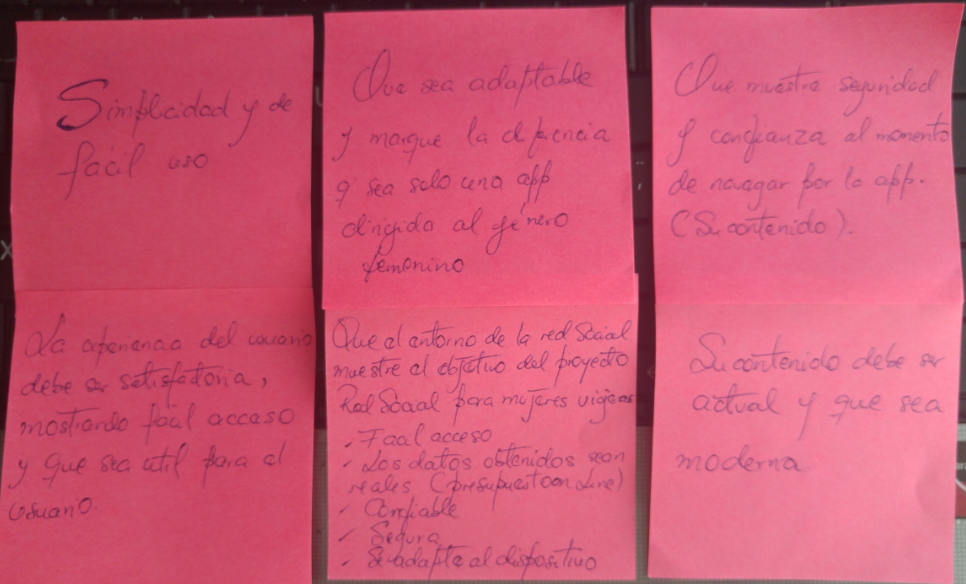 Simplicidad y de
facil uso
Que sea adaptable
y marque la diferencia
q sea solo una app
dirigida al género
femenino
Que muestre seguridad
y confianza al momento
de navegar por la app.
(Su contenido).
La experiencia del usuario
debe ser satisfatoria,
mostrando fácil acceso
y que sea util para el
usuario
Que el entorno de la red Social
muestre el objetivo del proyecto
Red Social para mujeres
. Facil acceso
- Los datos obtenidos sean
reales (presupuesto on Line)
- Confiable
- Segura
- Se adapte al dispositivo
Su contenido debe ser
actual y que sea
moderna.